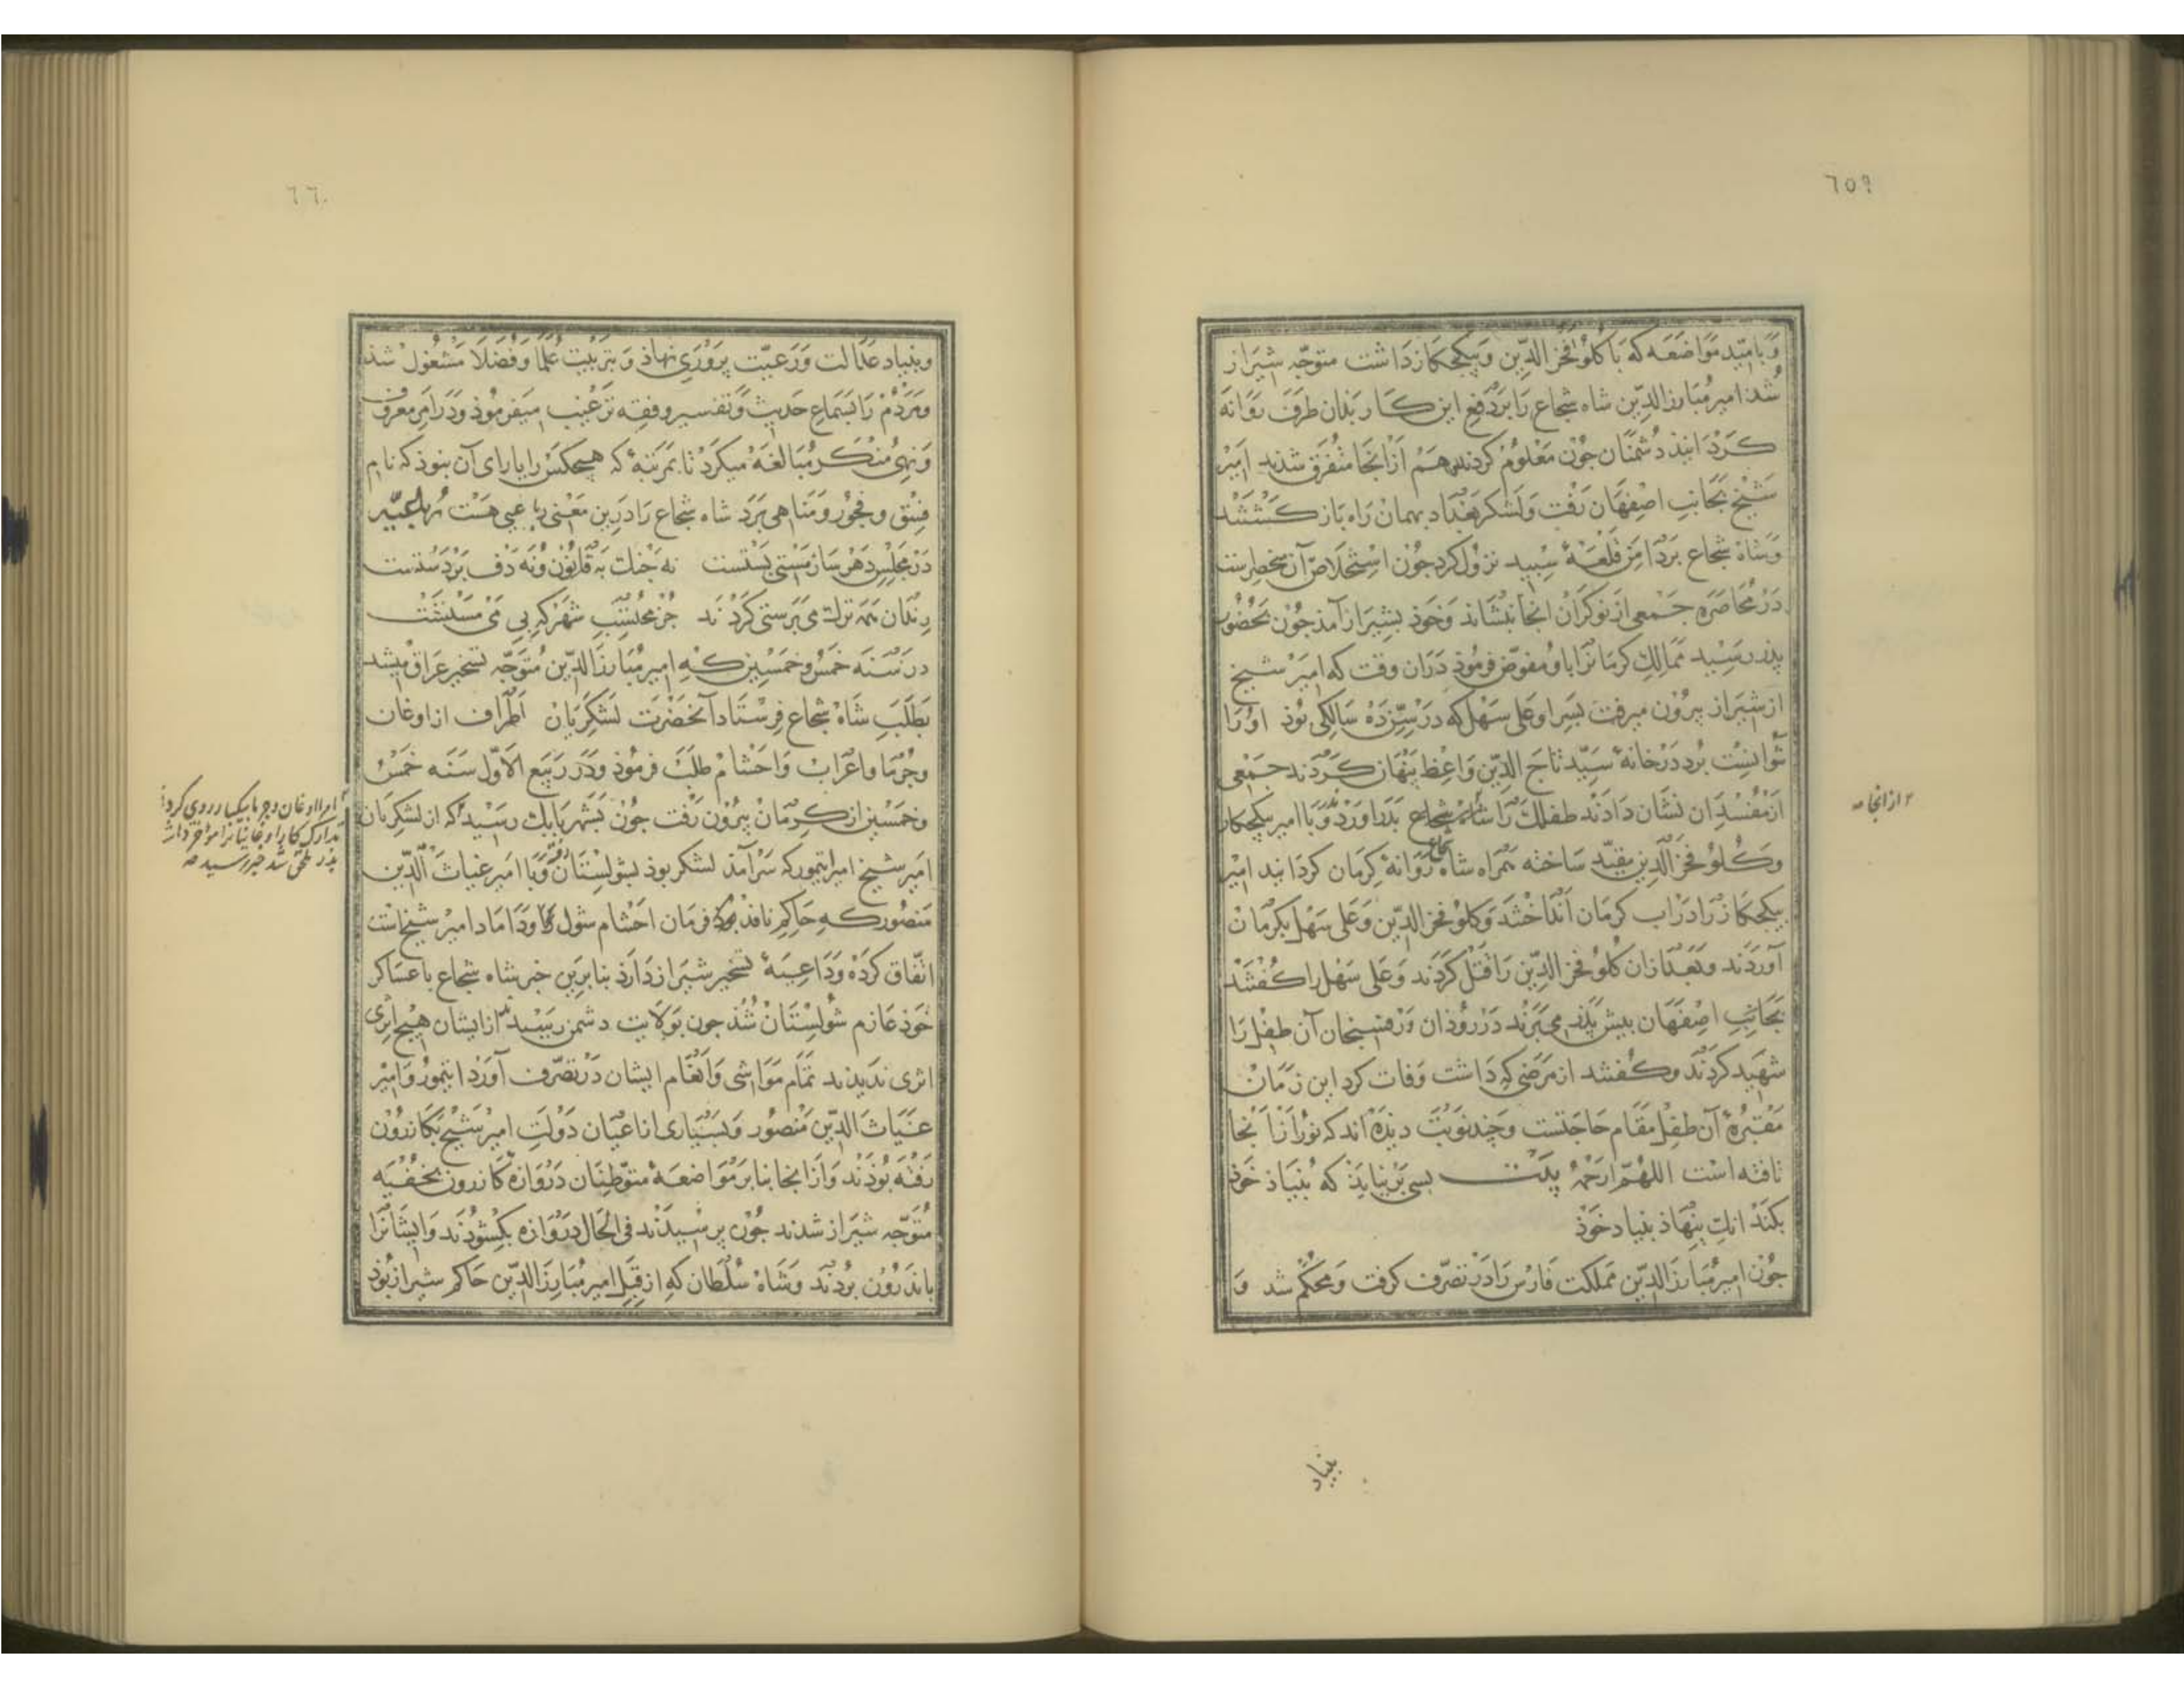 ٦٥٩
و بامید مواضعه که با کلو فخر الدین و بیکجکاز داشت متوجه شیراز
شد امیر مبارز الدین شاه شجاع را بر دفع این کار بدان طرف روانه
کردانید دشمنان جون معلوم کردند هم از انجا متفرق شدند امیر
شیخ بجانب اصفهان رفت و لشکر بغداد بهمان راه باز کشتند
و شاه شجاع بر دامن قلعهٔ سپید نزول کرد جون استخلاص آن منحصرست
در محاصره جمعی از نوکران انجا بنشاند و خوذ بشیراز آمد جون بحضور
پدر رسید ممالک کرمانرا باو مفوض فرموذ دران وقت که امیر شیخ
از شیراز بیرون میرفت بسر او علی سهل که در سیزده سالکی بوذ او را
نتوانست برد در خانهٔ سید تاج الدین واعظ پنهان کردند جمعی
از مفسدان نشان دادند طفلک را شاه شجاع بدر اورد و با امیر بیکجکاز
و کلو فخر الدین مقید ساخته همراه شاه شجاع روانهٔ کرمان کردانید امیر
بیکجکاز را در اب کرمان انداختند و کلو فخر الدین و علی سهل بکرمان
آوردند و بعد ازان کلو فخر الدین را قتل کردند و علی سهل را کفتند
بجانب اصفهان بیش پدر میبرند در روذان و رفسنجان آن طفل را
شهید کردند و کفتند از مرضی که داشت وفات کرد این زمان
مقبرهٔ آن طفل مقام حاجتست و جند نوبت دیده اند که نور از انجا
تافته است اللهم ارحمه بیت بسی بر نیاید که بنیاد خوذ
بکند انک بنهاذ بنیاد خوذ
جون امیر مبارز الدین مملکت فارس را در تصرف کرفت و محکم شد و
از انجا صه
بنیاد
٦٦٠
و بنیاد عدالت و رعیت پروری نهاذ و بتربیت علما و فضلا مشغول شد
و مردم را بسماع حدیث و تفسیر و فقه ترغیب میفرموذ و در امر معروف
و نهی منکر مبالغه میکرد تا بمرتبهٔ که هیچکس را یارای آن نبوذ که نام
فسق و فجور و مناهی برد شاه شجاع را درین معنی رباعی هست رباعیه
در مجلس دهر ساز مستی بستست نه جنک به قانون و نه دف بر دستست
رندان همه ترک می پرستی کردند جز محتسب شهر که بی می مستست
در سنه خمس و خمسین که امیر مبارز الدین متوجه تسخیر عراق میشد
بطلب شاه شجاع فرستاد آنحضرت لشکریان اطراف از اوغان
و جرما و اعراب و احشام طلب فرموذ و در ربیع الاول سنه خمس
و خمسین از کرمان بیرون رفت جون بشهر بابک رسید که از لشکریان
امیر شیخ امیر ایتمور که سر آمد لشکر بوذ بشولستان رفته و با امیر غیاث الدین
منصور که حاکم نافذ فرمان احشام شول بود و داماد امیر شیخ است
اتفاق کرده و داعیهٔ تسخیر شیراز دارد بنابرین خبر شاه شجاع با عساکر
خوذ عازم شولستان شذ جون بولایت دشمن رسید از ایشان هیچ اثری
اثری ندیدند تمام مواشی و انعام ایشان در تصرف آورد ایتمور و امیر
غیاث الدین منصور و بسیاری از اعیان دولت امیر شیخ بکازرون
رفته بوذند و از انجا بنا بر مواضعهٔ متوطنان دروازه کازرون بخفیه
متوجه شیراز شدند جون برسیدند فی الحال دروازه بکشوذند و ایشانرا
باندرون بردند و شاه سلطان که از قبل امیر مبارز الدین حاکم شیراز بوذ
امرا اوغان و جرما بیکبار روی کردان
تدارک کار اوغانیانرا مؤخر داشت
پدر ملحق شد خبر رسید صه